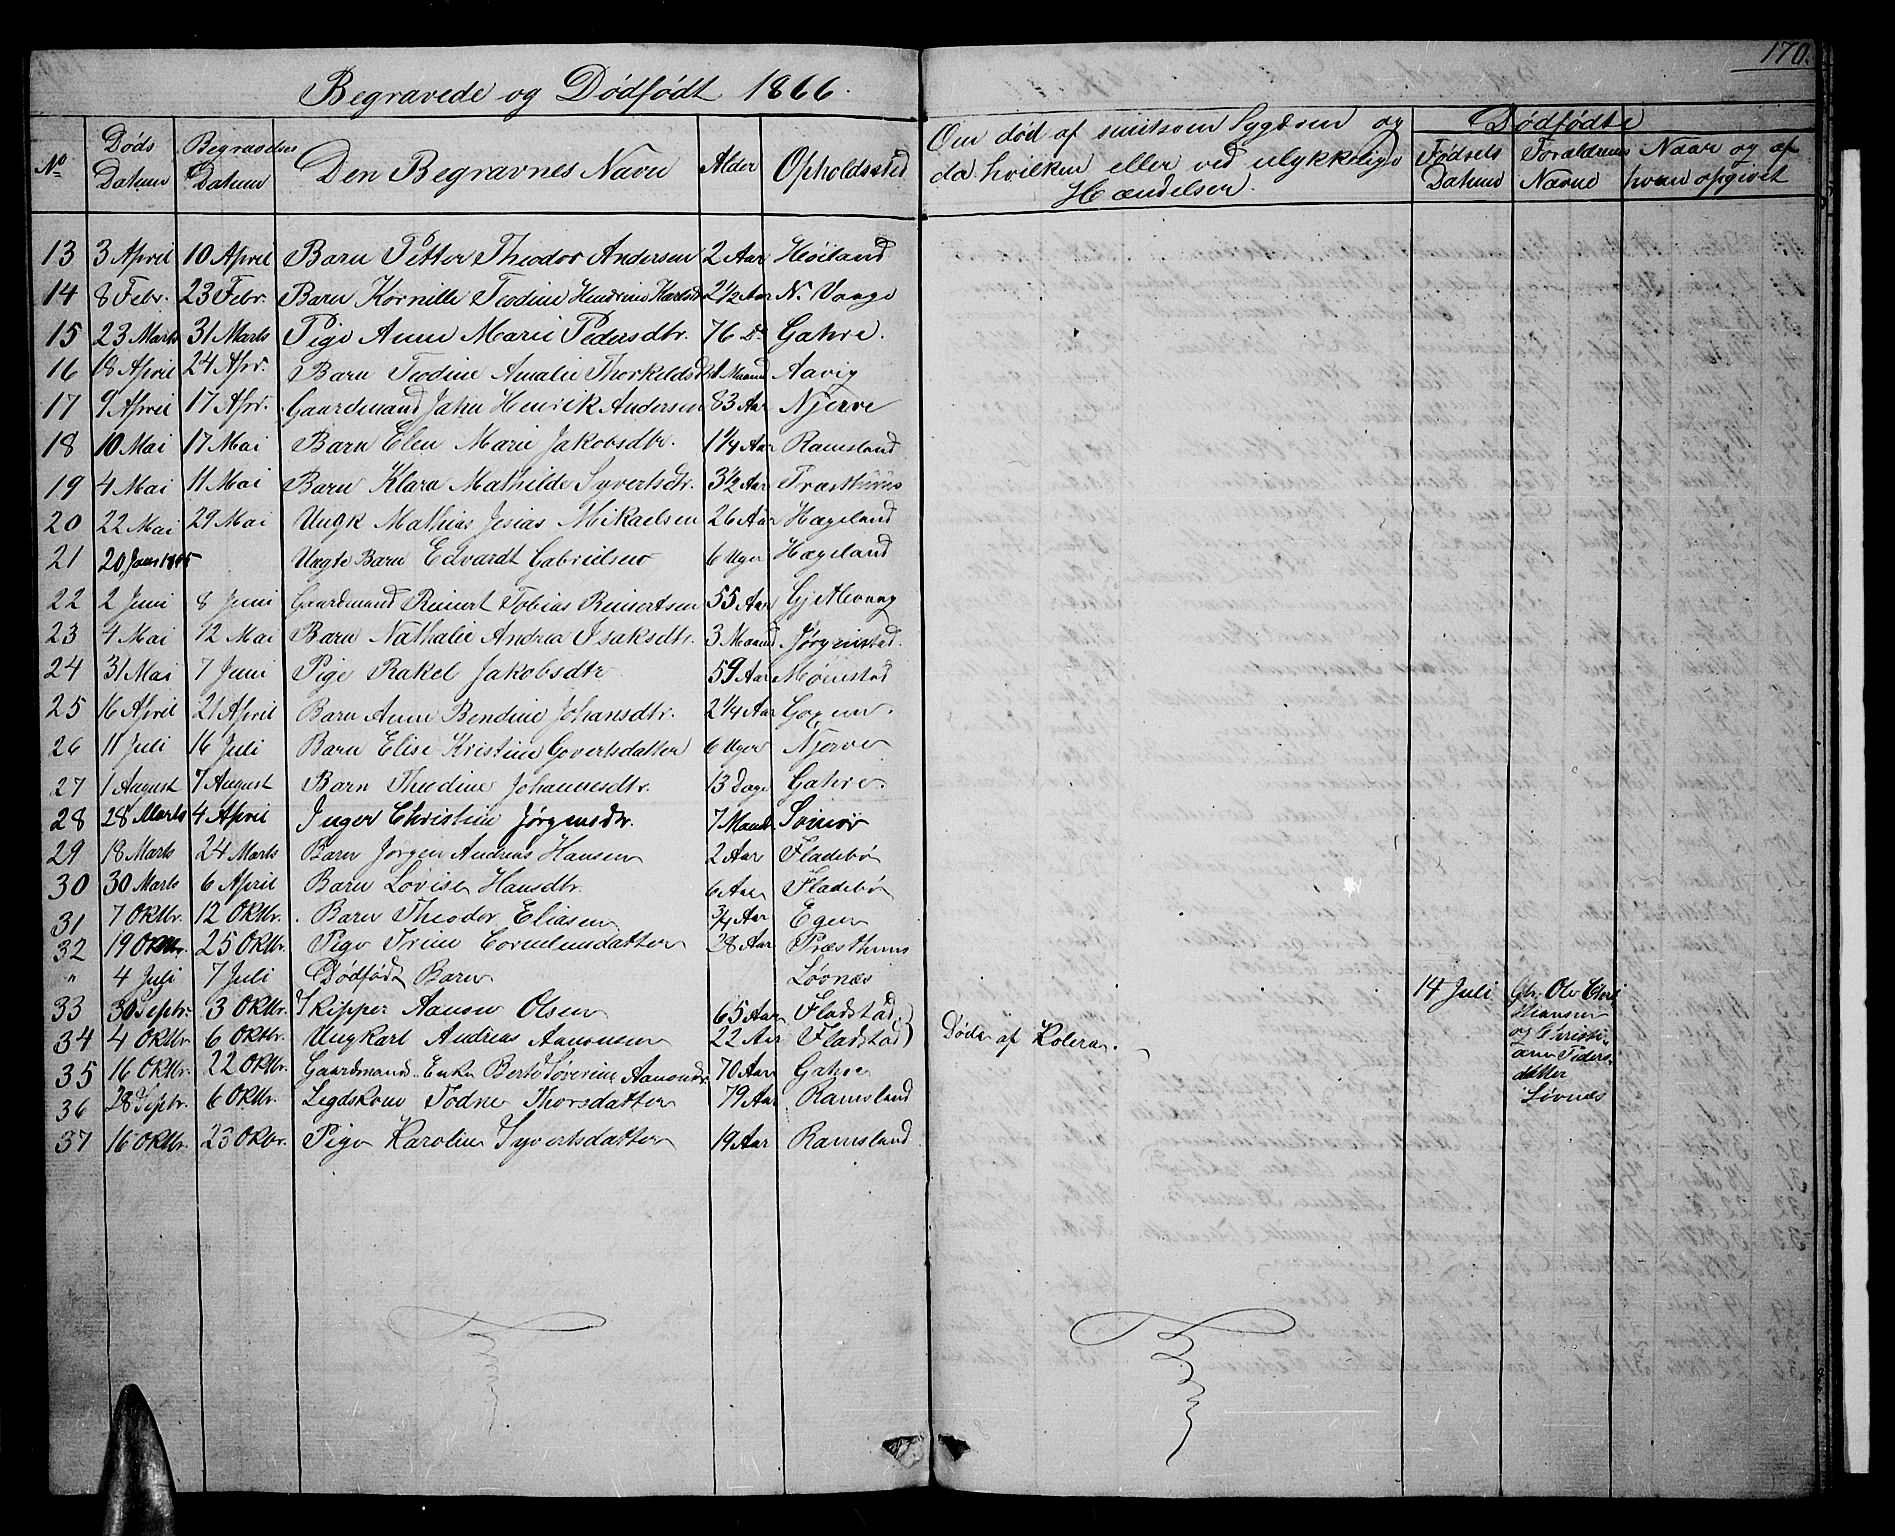 170.
Begravede og Dødfødt 1866.
No Døds Datum Begravelses Datum Den Begravnes Navn Alder Opholdssted Om død af smitsom Sygdom og da hvilken eller ved ulykkelige Hændelser. Dødfødte Fødsels Datum Forældrenes Navne Naar og af hvem opgivet
13 3 April 10 April Barn Petter Theodor Andersen 2 Aar Høiland
14 8 Febr. 23 Febr. Barn Kornille Teodine Hendrine Karlsdtr 2 1/2 Aar N. Vaage
15 23 Marts 31 Marts Pige Anne Marie Pedersdtr. 76 Do Gahre.
16 18 April 24 Apr. Barn Teodine Amalie Thorkeldsdtr 1 Maaned Aavig
17 9 April 17 Apr. Gaardmand Jahn Henrik Andersen 83 Aar Njerve
18 10 Mai 17 Mai Barn Elen Marie Jakobsdtr. 1 1/4 Aar Ramsland
19 4 Mai 11 Mai Barn Klara Mathilde Syvertsdtr. 3 1/2 Aar
20 22 Mai 29 Mai Ungk Mathias Jesias Mikaelsen 26 Aar Hægeland
21 20 Uægte Barn Edvardt Gabrielsen 6 Uger Hægeland
22 2 Juni 8 Juni Gaardmand Reinert Tobias Reinertsen 55 Aar
23 4 Mai 12 Mai Barn Nathalie Andrea Isaksdtr. 3 Maaned Jørgenstad.
24 31 Mai 7 Juni Pige Rakel Jakobsdtr 59 Aar Møinstad
25 16 April 21 April Barn Anne Bendine Johansdtr. 2 1/4 Aar
26 11 Juli 16 Juli Barn Elise Kristine Govertsdatter 6 Uger Njerve
27 1 August 7 August Barn Thedine Johannesdtr. 13 Dage Gahre.
28 28 Marts 4 April Inger Christine Jørgensdtr. 7 Maadr.
29 18 Marts 24 Marts Barn Jørgen Andreas Hansen 2 Aar Fladebø
30 30 Marts 6 April Barn Lovise Hansdtr. 6 Aar Fladebø
31 7 Oktbr. 12 Oktbr. Barn Theodor Eliasen 3/4 Aar Egen
32 19 Oktbr. 25 Oktbr. Pige Trine Corneliusdatter 28 Aar Præsthuus
" 4 Juli 7 Juli Dødfødt Barn Løvnes 14 Juli Gbr. Ole Chr.
33 30 Septr. 3 Oktbr. Skipper Aanen Olsen 65 Aar Fladstad
34 4 Oktbr. 6 Oktbr. Ungkarl Andreas Aanensen 22 Aar Fladstad Døde af Kolera.
35 16 Oktbr. 22 Oktbr. Gaardmand Enke Berte Severine Aanensdr. 70 Aar Gahre
36 28 Septr. 6 Oktbr. Legdskone Todne Thorsdatter 79 Aar Ramsland
37 16 Oktbr. 23 Oktbr. Pige Karoline Syvertsdatter 19 Aar Ramsland
Hansen
og Christi-
ane Peders-
datter
Løvnes